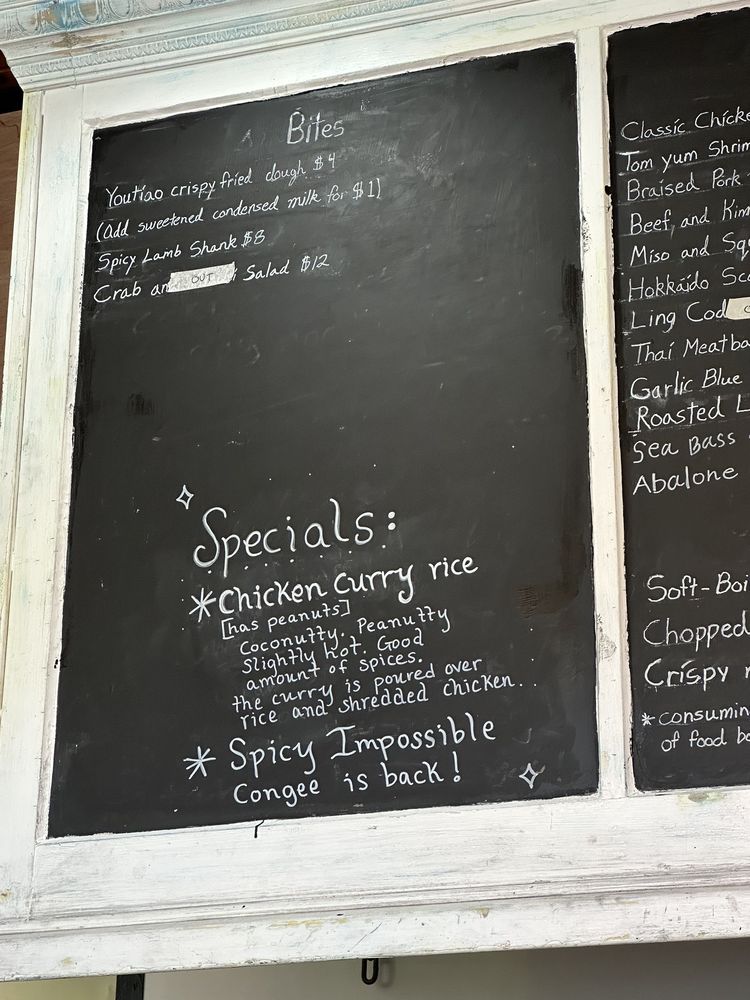 Bites
Youtiao crispy fried dough $4
(Add sweetened condensed milk for $1)
Spicy Lamb Shank $8
Crab an OUT Salad $12
Specials:
*Chicken Curry rice
[has peanuts]
Coconutty. Peanutty
Slightly hot. Good
amount of spices.
the curry is poured over
rice and shredded chicken..
* Spicy Impossible
Congee is back!
Classic Chicke
Tom yum Shrim
Braised Pork
Beef, and Kim
Miso and Squ
Hokkaido Sca
Ling Cod
Thai Meatba
Garlic Blue
Roasted L
Sea Bass
Abalone
Soft-Boi
Chopped
Crispy
* consumin
of food bo